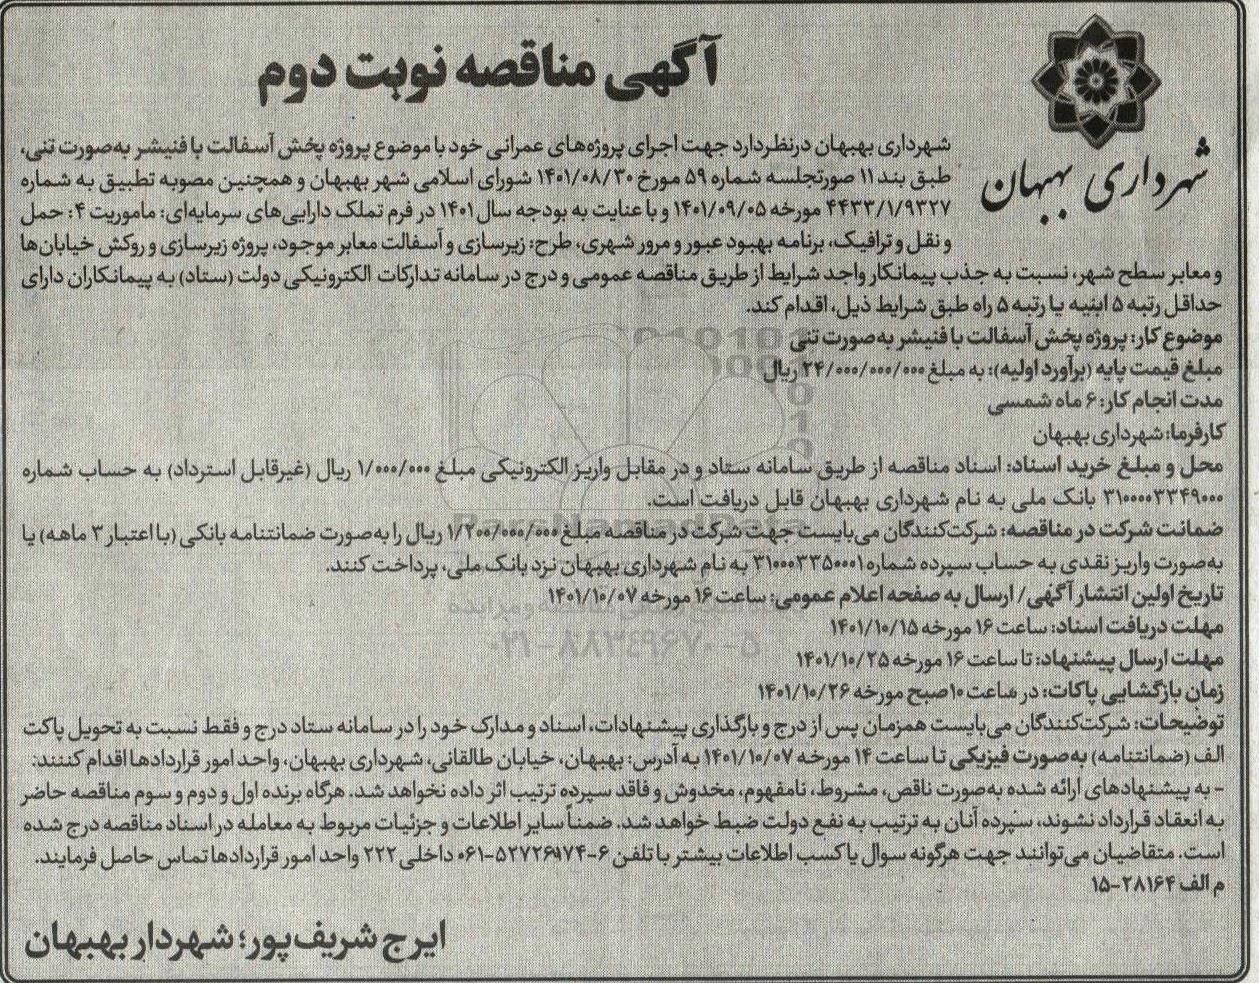 آگهی مناقصه نوبت دوم
شهرداری بهبهان
شهرداری بهبهان درنظر دارد جهت اجرای پروژه‌های عمرانی خود با موضوع پروژه پخش آسفالت با فنیشر به‌صورت تنی،
طبق بند ۱۱ صورتجلسه شماره ۵۹ مورخ ۱۴۰۱/۰۸/۳۰ شورای اسلامی شهر بهبهان و همچنین مصوبه تطبیق به شماره
۴۴۳۳/۱/۹۳۲۷ مورخه ۱۴۰۱/۰۹/۰۵ و با عنایت به بودجه سال ۱۴۰۱ در فرم تملک دارایی‌های سرمایه‌ای: ماموریت ۴: حمل
و نقل و ترافیک، برنامه بهبود عبور و مرور شهری، طرح: زیرسازی و آسفالت معابر موجود، پروژه زیرسازی و روکش خیابان‌ها
و معابر سطح شهر، نسبت به جذب پیمانکار واجد شرایط از طریق مناقصه عمومی و درج در سامانه تدارکات الکترونیکی دولت (ستاد) به پیمانکاران دارای
حداقل رتبه ۵ ابنیه یا رتبه ۵ راه طبق شرایط ذیل، اقدام کند.
موضوع کار: پروژه پخش آسفالت با فنیشر به‌صورت تنی
مبلغ قیمت پایه (برآورد اولیه): به مبلغ ۲۴/۰۰۰/۰۰۰/۰۰۰ ریال
مدت انجام کار: ۶ ماه شمسی
کارفرما: شهرداری بهبهان
محل و مبلغ خرید اسناد: اسناد مناقصه از طریق سامانه ستاد و در مقابل واریز الکترونیکی مبلغ ۱/۰۰۰/۰۰۰ ریال (غیرقابل استرداد) به حساب شماره
۳۱۰۰۰۰۳۳۴۹۰۰۰ بانک ملی به نام شهرداری بهبهان قابل دریافت است.
ضمانت شرکت در مناقصه: شرکت‌کنندگان می‌بایست جهت شرکت در مناقصه مبلغ ۱/۲۰۰/۰۰۰/۰۰۰ ریال را به‌صورت ضمانتنامه بانکی (با اعتبار ۳ ماهه) یا
به‌صورت واریز نقدی به حساب سپرده شماره ۳۱۰۰۰۰۳۳۵۰۰۰۱ به نام شهرداری بهبهان نزد بانک ملی، پرداخت کنند.
تاریخ اولین انتشار آگهی/ ارسال به صفحه اعلام عمومی: ساعت ۱۶ مورخه ۱۴۰۱/۱۰/۰۷
مهلت دریافت اسناد: ساعت ۱۶ مورخه ۱۴۰۱/۱۰/۱۵
مهلت ارسال پیشنهاد: تا ساعت ۱۶ مورخه ۱۴۰۱/۱۰/۲۵
زمان بازگشایی پاکات: در ساعت ۱۰ صبح مورخه ۱۴۰۱/۱۰/۲۶
توضیحات: شرکت‌کنندگان می‌بایست همزمان پس از درج و بارگذاری پیشنهادات، اسناد و مدارک خود را در سامانه ستاد درج و فقط نسبت به تحویل پاکت
الف (ضمانتنامه) به‌صورت فیزیکی تا ساعت ۱۴ مورخه ۱۴۰۱/۱۰/۰۷ به آدرس: بهبهان، خیابان طالقانی، شهرداری بهبهان، واحد امور قراردادها اقدام کنند:
- به پیشنهادهای ارائه شده به‌صورت ناقص، مشروط، نامفهوم، مخدوش و فاقد سپرده ترتیب اثر داده نخواهد شد. هرگاه برنده اول و دوم و سوم مناقصه حاضر
به انعقاد قرارداد نشوند، سپرده آنان به ترتیب به نفع دولت ضبط خواهد شد. ضمناً سایر اطلاعات و جزئیات مربوط به معامله در اسناد مناقصه درج شده
است. متقاضیان می‌توانند جهت هرگونه سوال یا کسب اطلاعات بیشتر با تلفن ۶-۰۶۱-۵۲۷۲۶۹۷۴ داخلی ۲۲۲ واحد امور قراردادها تماس حاصل فرمایند.
م الف ۲۸۱۶۴-۱۵
ایرج شریف‌پور؛ شهردار بهبهان
ParsNamadData
۰۲۱-۸۸۳۴۹۶۷۰-۵